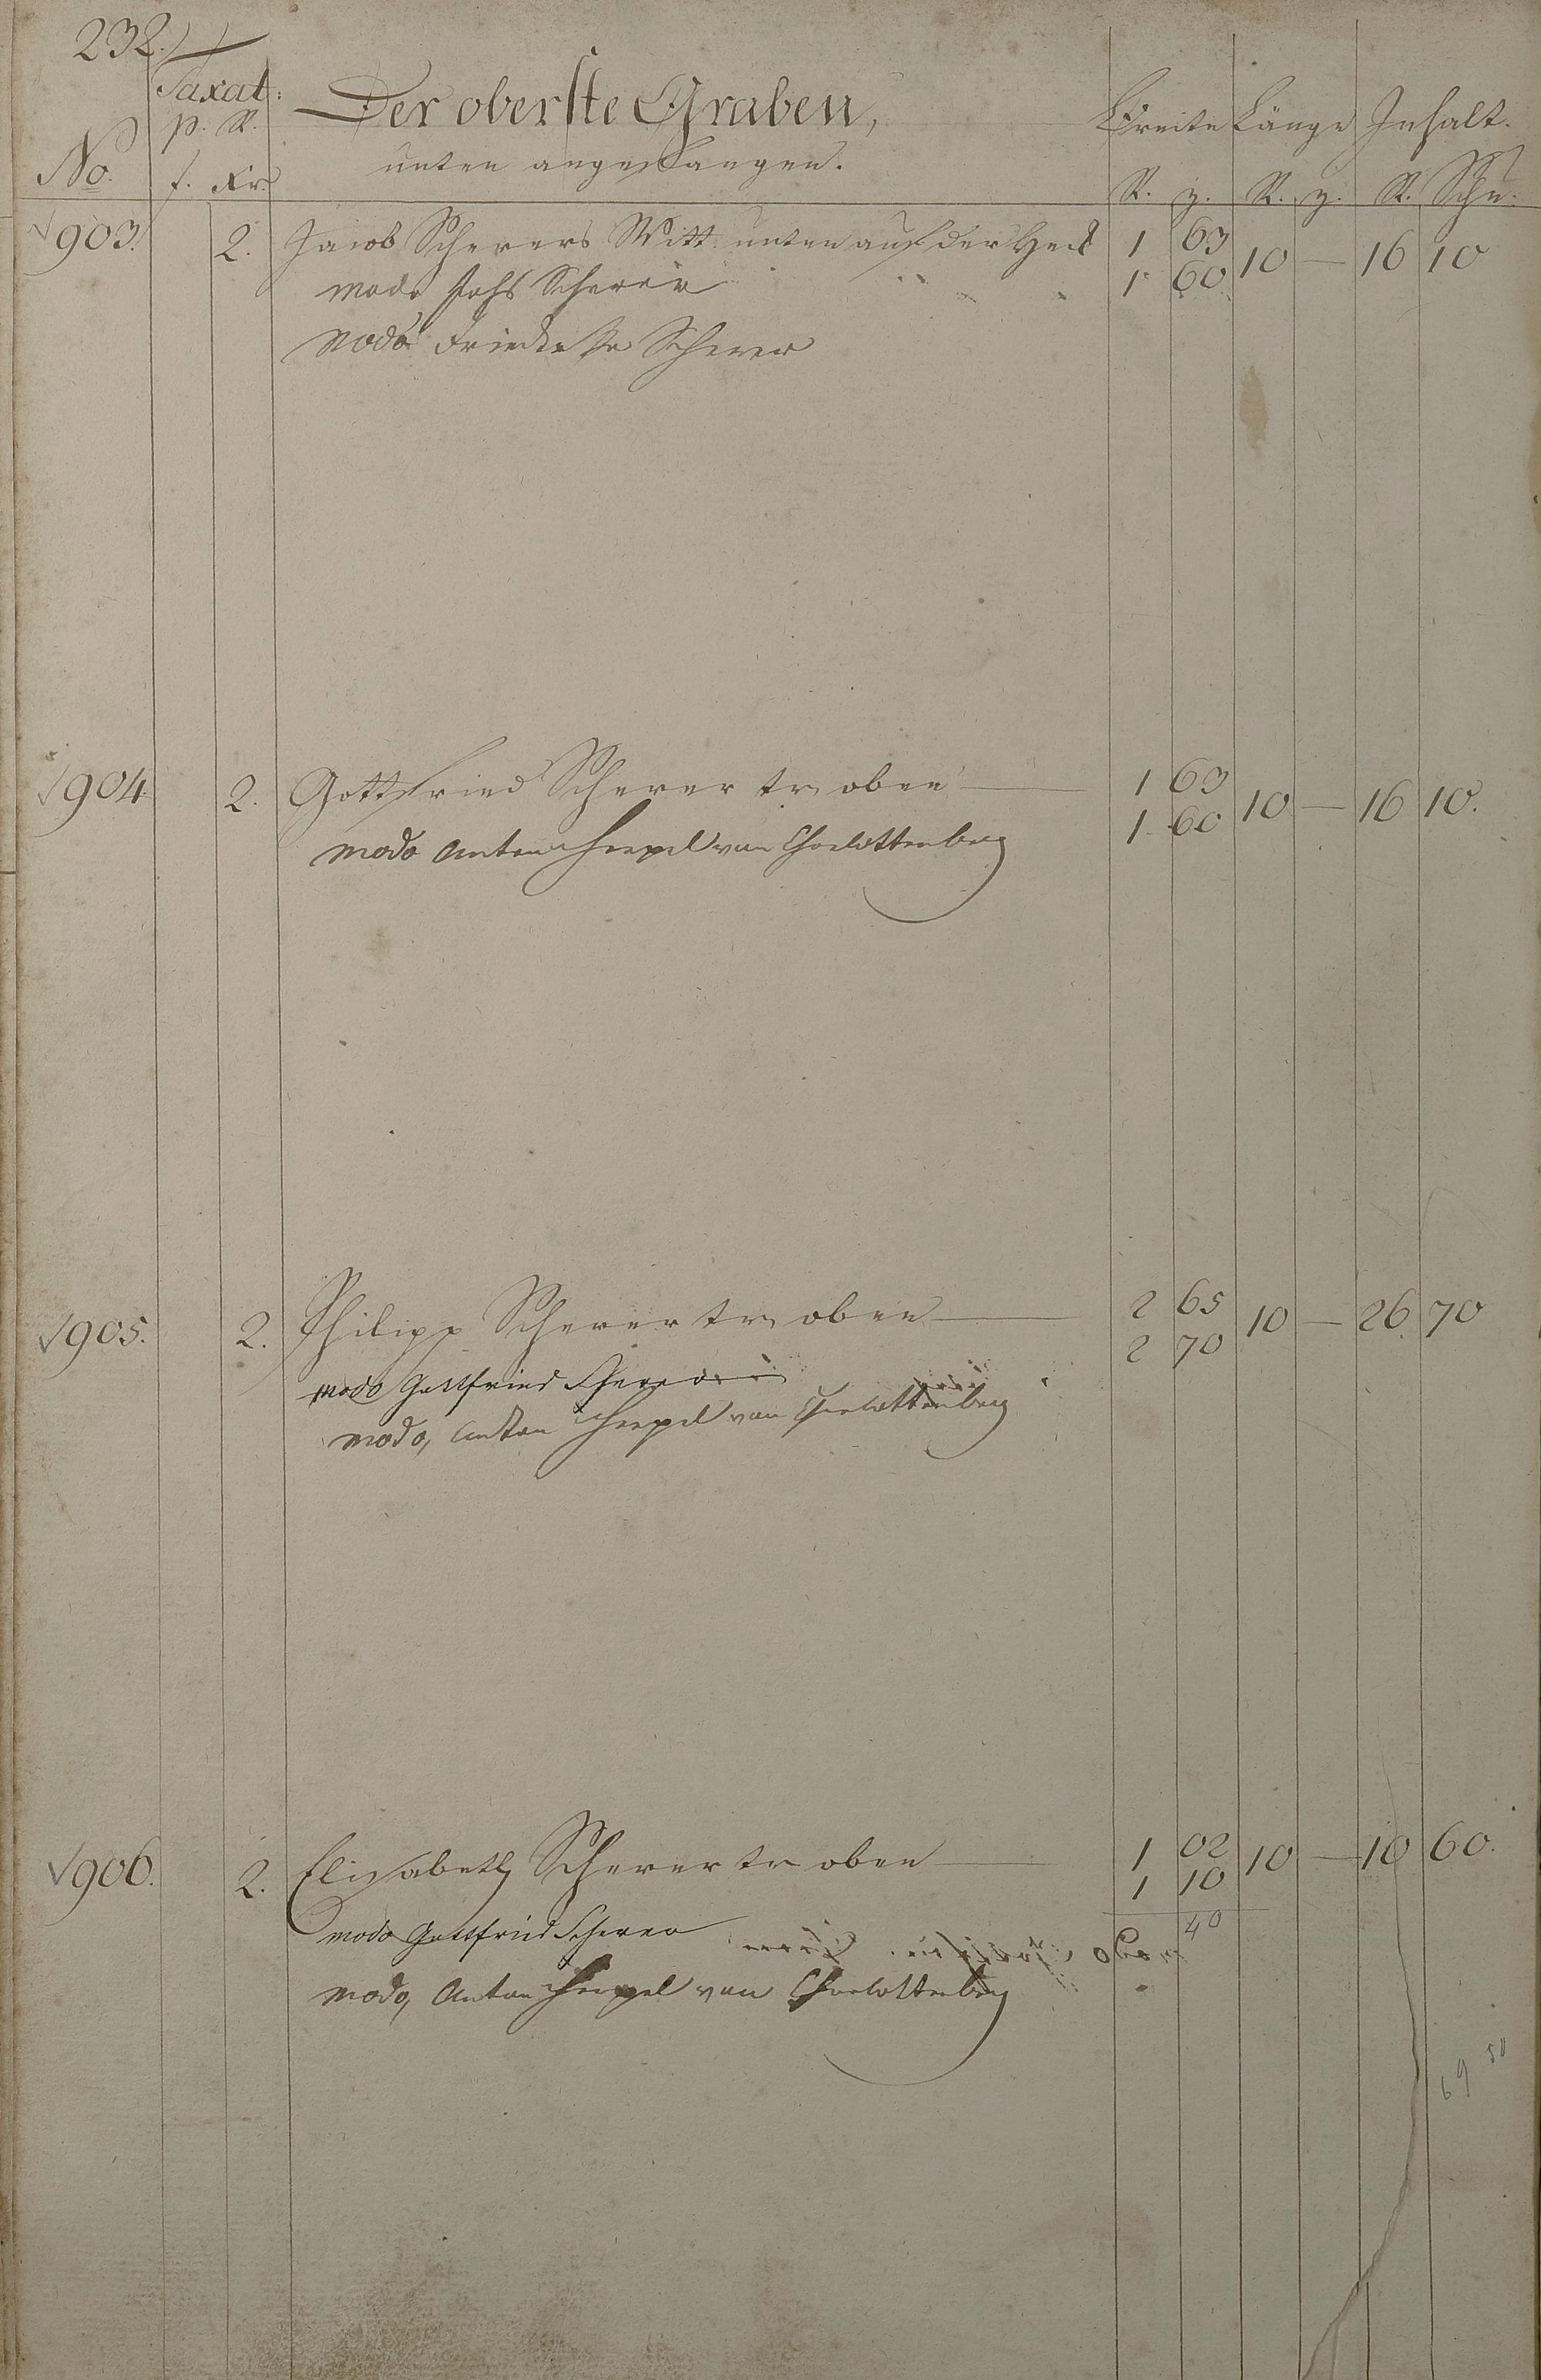 232.
Taxat:
p. R.
Der oberste Graben,
Breite Länge Inhalt.
No. f. Xr.
unten angefangen.
R. z. R. z. R. Schu.
903. 2. Jacob Scherers Witt. unten auf der Heck 1 63 10 — 16 10
modo Johs Scherer 1 60
modo Scherer
904. 2. Gottfried Scherer tr. oben — 1 63 10 — 16 10.
modo Anton Hempel von Charlottenberg 1 60
905. 2. Philipp Scherer tr. oben — 2 65 10 — 26. 70
modo Gottfried Scherer 2 70
modo, Anton Hempel von Charlottenberg
906. 2. Elisabeth Scherer tr. oben — 1 02 10 — 10 60.
1 10
modo Gottfried Scherer 40
modo, Anton Hempel von Charlottenberg
69 50